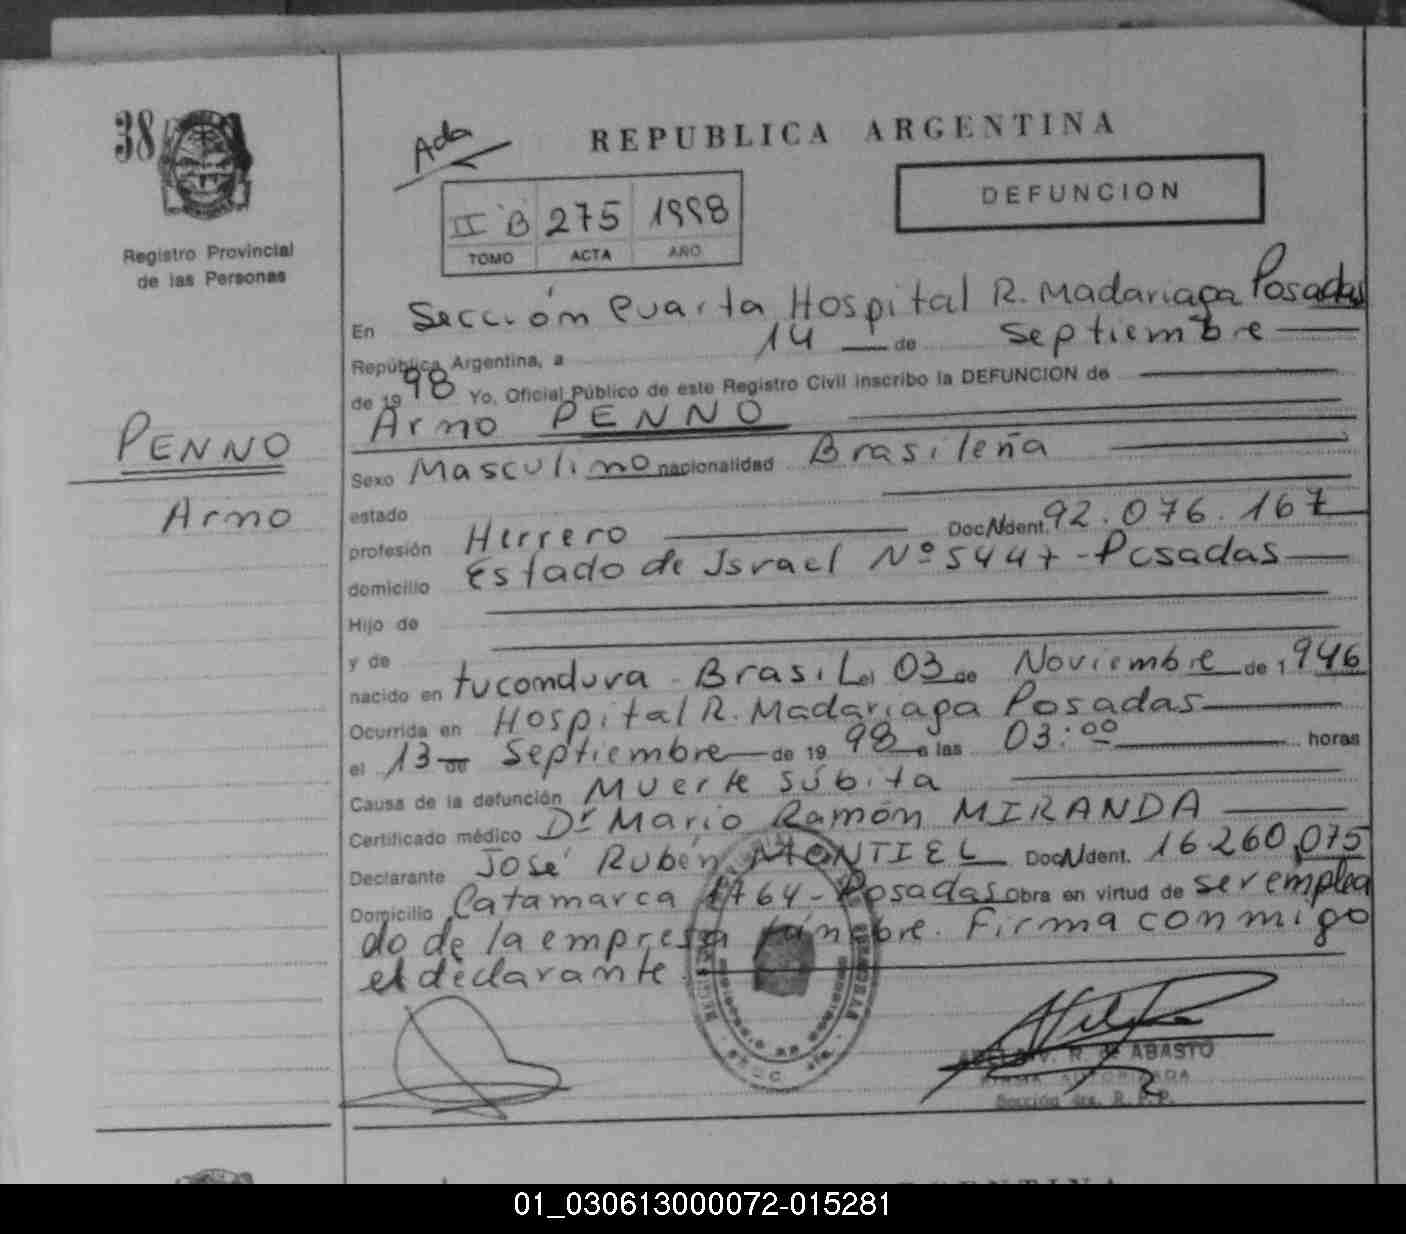 38
Registro Provincial
de las Personas
PENNO
Arno
Ada
REPUBLICA ARGENTINA
DEFUNCION
II B 275 1998
TOMO ACTA AÑO
En Sección Cuarta Hospital R. Madariaga Posadas
República Argentina, a 14 de Septiembre
de 1998 Yo, Oficial Público de este Registro Civil inscribo la DEFUNCION de
Arno PENNO
Sexo Masculino nacionalidad Brasileña
estado
profesión Herrero Doc. N Ident. 92.076.167
domicilio Estado de Israel Nº 5447 - Posadas
Hijo de
y de
nacido en tucondura - Brasil el 03 de Noviembre de 1946
Ocurrida en Hospital R. Madariaga Posadas
el 13 de Septiembre de 1998 a las 03:00 horas
Causa de la defunción Muerte súbita
Certificado médico Dr Mario Ramón MIRANDA
Declarante José Rubén MONTIEL Doc. N Ident. 16.260.075
Domicilio Catamarca 1764 - Posadas obra en virtud de ser emplea
do de la empresa fúnebre. Firma conmigo
el declarante
V. R. de ABASTO
FIRMA AUTORIZADA
Sección 4ta. R. P. P.
01_030613000072-015281